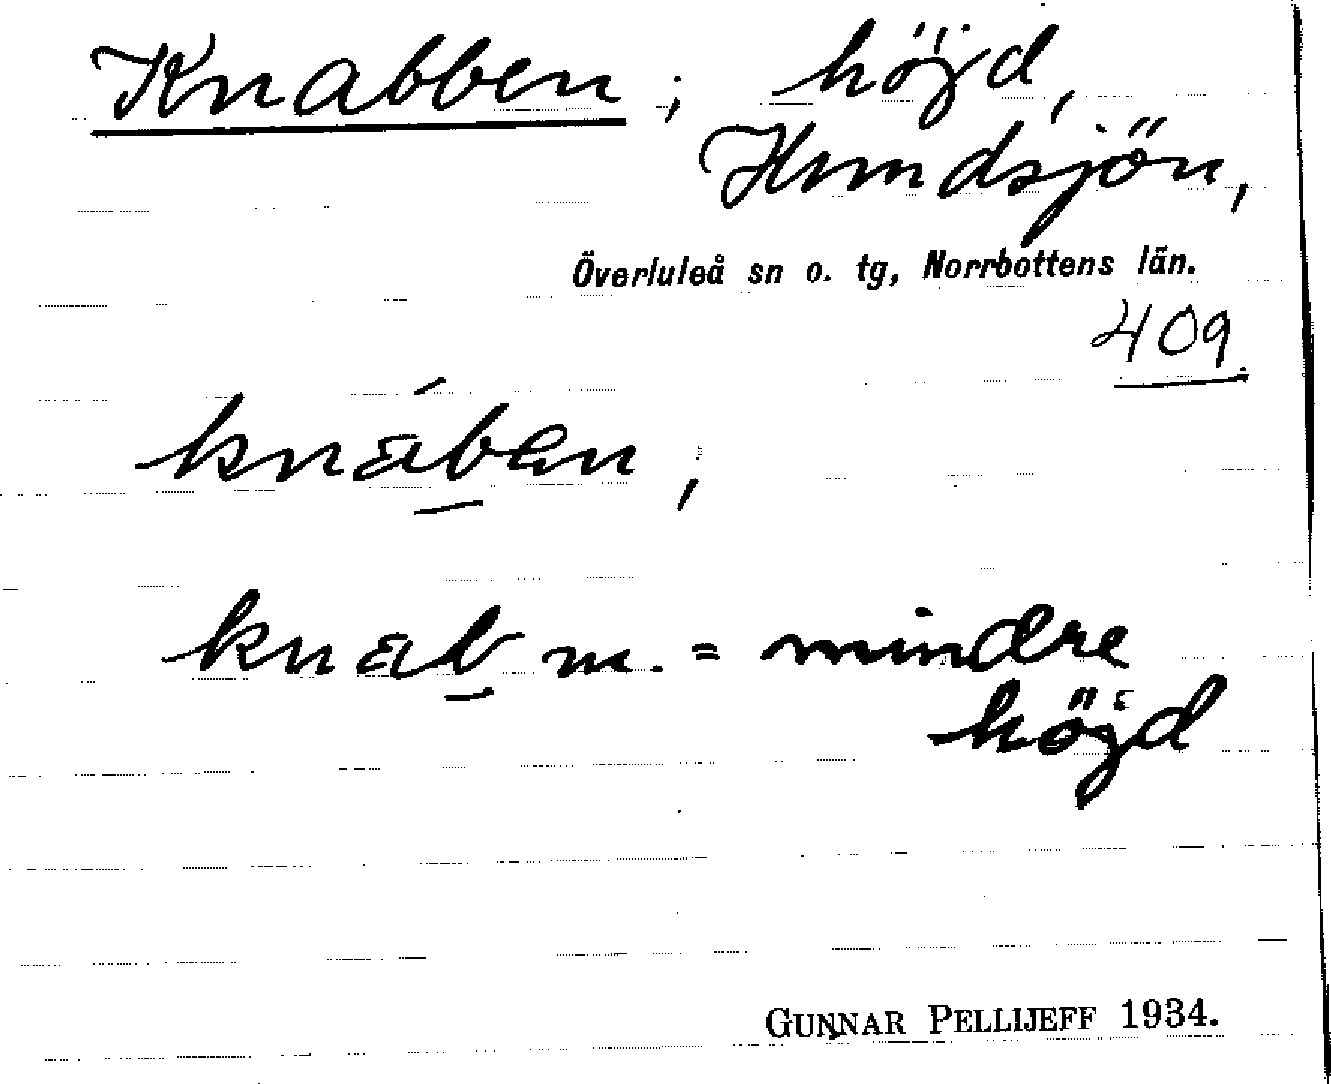 Knabben; höjd,
Hundsjön,
Överluleå sn o. tg, Norrbottens län.
409
knáb̲en;
knab̲ m. = mindre
höjd
GUNNAR PELLIJEFF 1934.